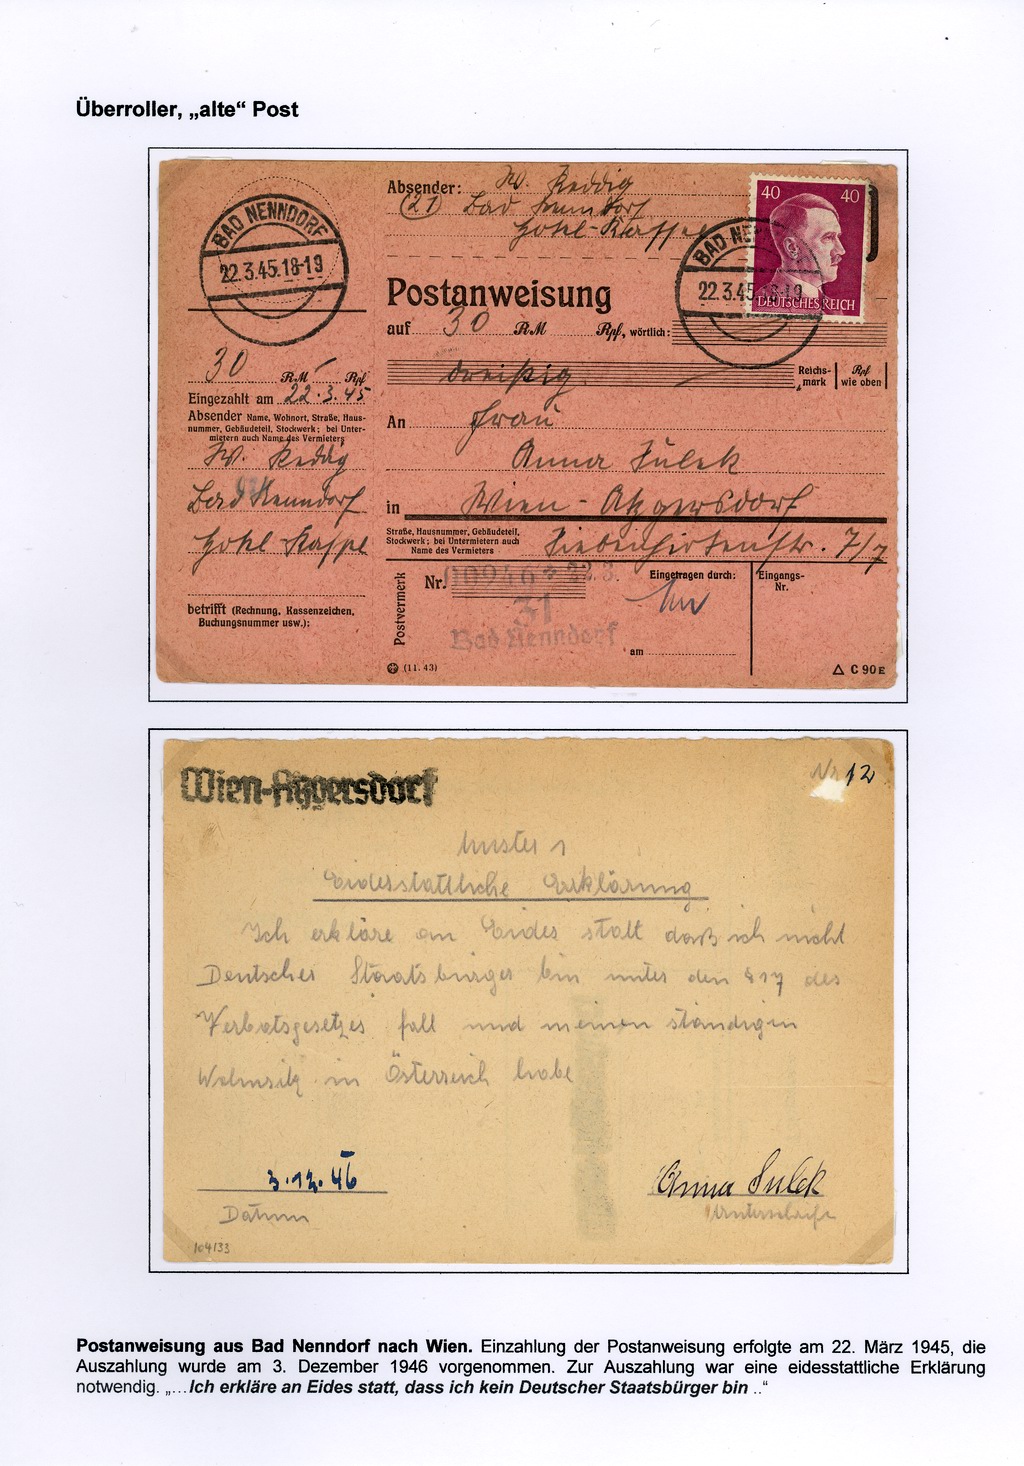 Überroller, „alte“ Post
BAD NENNDORF
22.3.45.18-19
Absender: W. Reddig
(21) Bad Nenndorf
Hotel-Kassel
40 40
DEUTSCHES REICH
BAD NE
22.3.45 18-19
Postanweisung
auf 30 RM Rpf, wörtlich:
dreißig
Reichs-
mark
Rpf
wie oben
30 RM Rpf
Eingezahlt am 22.3.45
Absender Name, Wohnort, Straße, Haus-
nummer, Gebäudeteil, Stockwerk; bei Unter-
mietern auch Name des Vermieters
W. Reddig
Bad Nenndorf
betrifft (Rechnung, Kassenzeichen,
Buchungsnummer usw.):
An Frau
Anna Sulek
in Wien-Atzgersdorf
Straße, Hausnummer, Gebäudeteil,
Stockwerk; bei Untermietern auch
Name des Vermieters
Siebenhirtenstr. 7/7
Postvermerk
Nr. 10946 * 22.3.
31
Bad Nenndorf
Eingetragen durch:
am
Eingangs-
Nr.
(11. 43)
C 90 E
Wien-Atzgersdorf
Nr 12
Muster 1
Eidesstattliche Erklärung
Ich erkläre an Eides statt daß ich nicht
Deutscher Staatsbürger bin unter den § 17 des
Verbotsgesetzes fall und meinen ständigen
Wohnsitz in Österreich habe
3.12.46
Anna Sulek
Datum
Unterschrift
104133
Postanweisung aus Bad Nenndorf nach Wien. Einzahlung der Postanweisung erfolgte am 22. März 1945, die
Auszahlung wurde am 3. Dezember 1946 vorgenommen. Zur Auszahlung war eine eidesstattliche Erklärung
notwendig. „...Ich erkläre an Eides statt, dass ich kein Deutscher Staatsbürger bin ..“